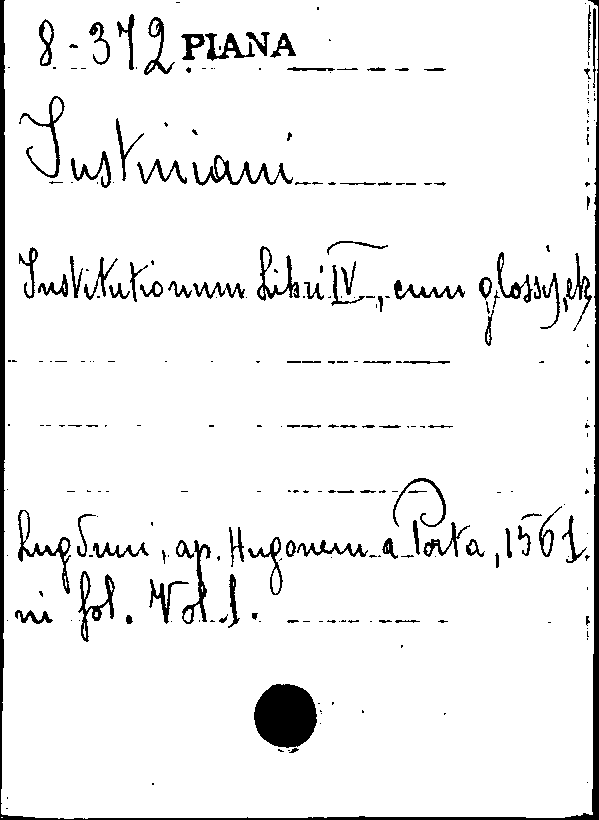 8-372 PIANA
Justiniani
Institutionum Libri IV, cum glossis, etc
Lugduni, ap. Hugonem a Porta, 1561.
in fol. Vol. 1.